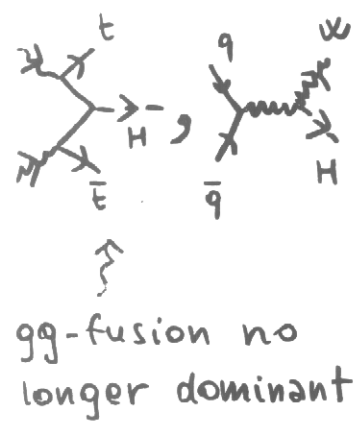 t
H ,
t̄
q
q̄
W
H
gg-fusion no
longer dominant